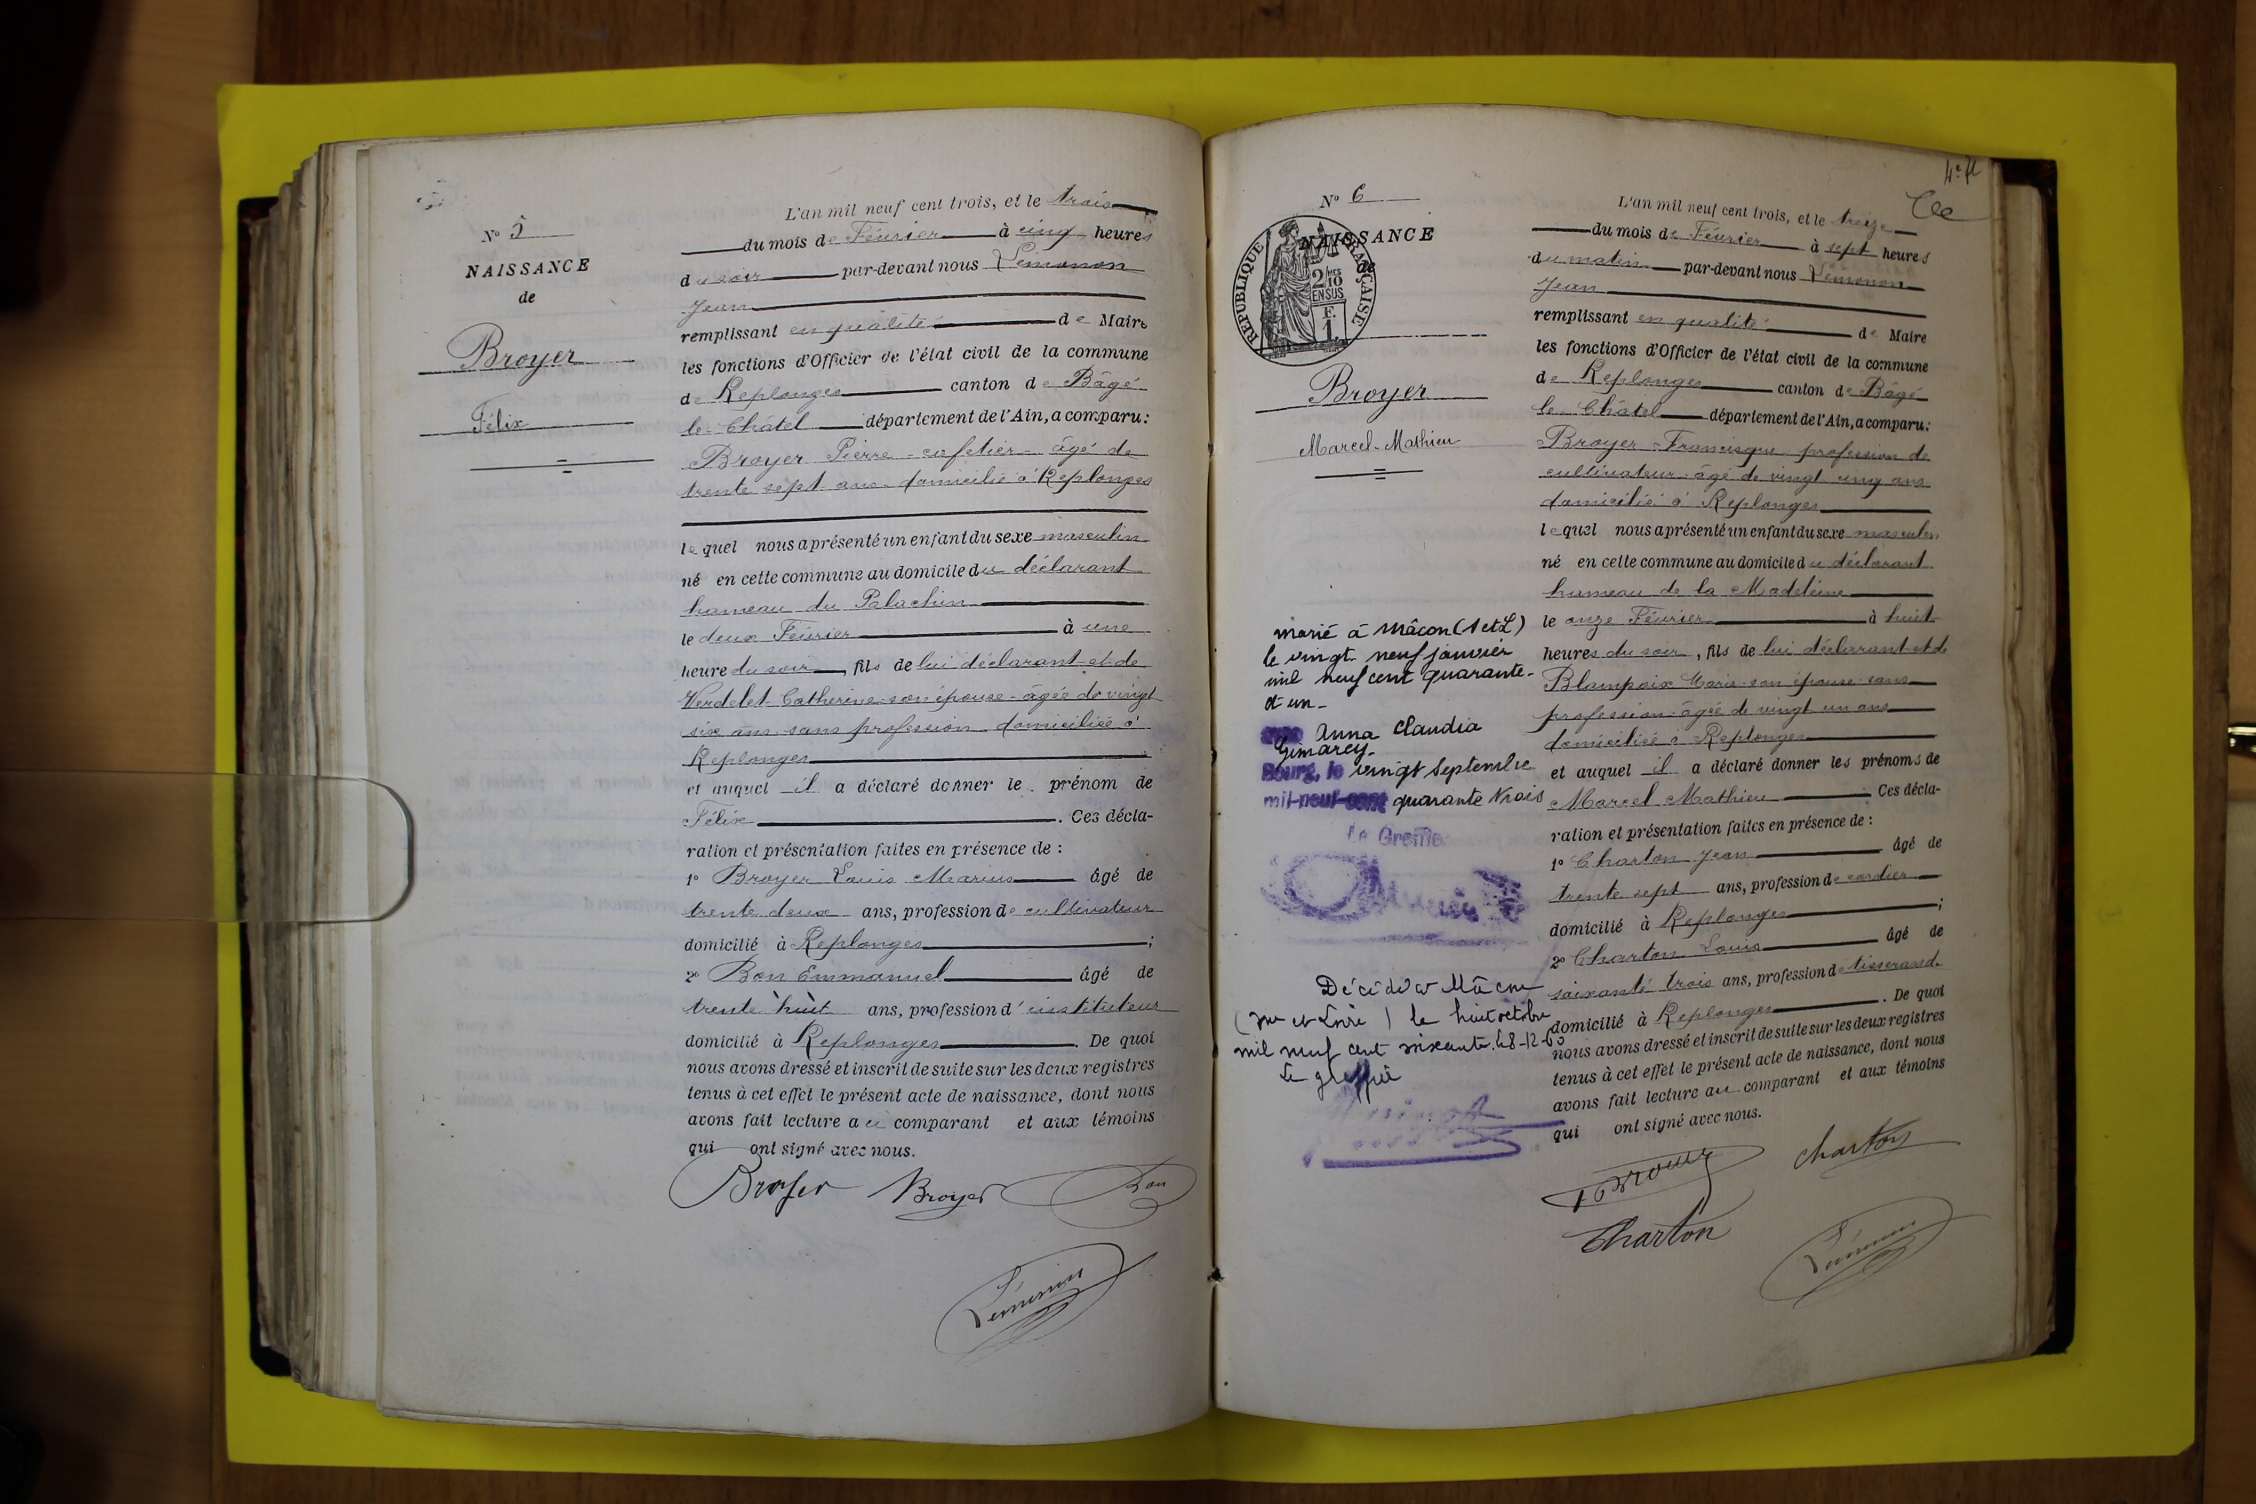 N° 5
NAISSANCE
de
Broyer
Félix
L'an mil neuf cent trois, et le trois
du mois de Février à cinq heures
du soir par-devant nous Lémonon
Jean
remplissant en qualité de Maire
les fonctions d'Officier de l'état civil de la commune
de Replonges canton de Bâgé
le Châtel département de l'Ain, a comparu:
Broyer Pierre - cafetier - âgé de
trente sept ans - domicilié à Replonges
lequel nous a présenté un enfant du sexe masculin
né en cette commune au domicile du déclarant
hameau du Palachin
le deux Février à une
heure du soir, fils de lui déclarant et de
Verdelet Catherine son épouse - âgée de vingt
six ans sans profession domiciliée à
Replonges
et auquel il a déclaré donner le prénom de
Félix. Ces décla-
ration et présentation faites en présence de :
1° Broyer Louis Marius âgé de
trente deux ans, profession de cultivateur
domicilié à Replonges;
2° Bon Emmanuel âgé de
trente huit ans, profession d'instituteur
domicilié à Replonges. De quoi
nous avons dressé et inscrit de suite sur les deux registres
tenus à cet effet le présent acte de naissance, dont nous
avons fait lecture au comparant et aux témoins
qui ont signé avec nous.
Broyer Broyer Bon
Lémonon
N° 6
NAISSANCE
de
REPUBLIQUE FRANÇAISE
2/10 EN SUS
F. 1
Broyer
Marcel-Mathieu
marié à Mâcon (S et L)
le vingt-neuf janvier
mil neuf cent quarante-
et un-
avec Anna Claudia
Gimarey-
Bourg, le vingt Septembre
mil-neuf-cent quarante trois
Le Greffier
Décédé à Mâcon
(Sne et Loire) le huit octobre
mil neuf cent soixante. Le 8-12-60
Le greffier
4e ft
L'an mil neuf cent trois, et le treize
du mois de Février à sept heures
du matin par-devant nous Lémonon
Jean
remplissant en qualité de Maire
les fonctions d'Officier de l'état civil de la commune
de Replonges canton de Bâgé
le Châtel département de l'Ain, a comparu:
Broyer Francisque profession de
cultivateur âgé de vingt cinq ans
domicilié à Replonges
lequel nous a présenté un enfant du sexe masculin
né en cette commune au domicile du déclarant
hameau de la Madeleine
le onze Février à huit
heures du soir, fils de lui déclarant et de
Blampoix Marie son épouse sans
profession âgée de vingt un ans
domiciliée à Replonges
et auquel il a déclaré donner les prénoms de
Marcel Mathieu Ces décla-
ration et présentation faites en présence de :
1° Charton Jean âgé de
trente sept ans, profession de cordier
domicilié à Replonges;
2° Charton Louis âgé de
soixante trois ans, profession de tisserand
domicilié à Replonges. De quoi
nous avons dressé et inscrit de suite sur les deux registres
tenus à cet effet le présent acte de naissance, dont nous
avons fait lecture au comparant et aux témoins
qui ont signé avec nous.
Broyer Charton
Charton Lémonon